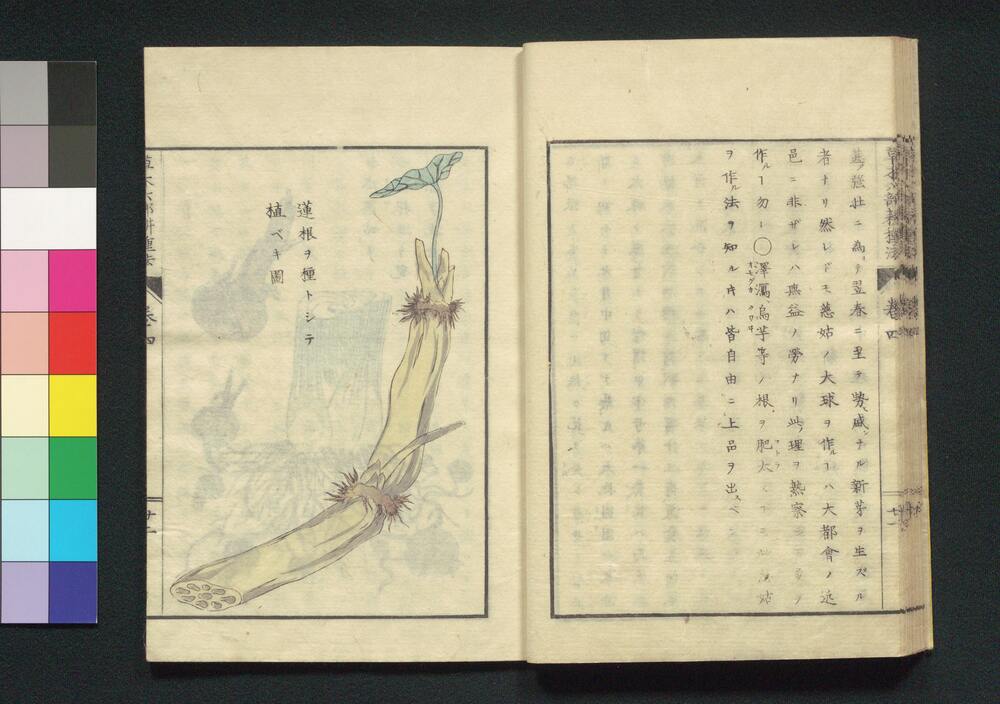 甚ノ強壮ニ為テ翌春ニ至テ勢盛ナル新芽ヲ生ズル
者ナリ然レドモ慈姑ノ大球ヲ作ルヿハ大都會ノ近
邑ニ非ザレハ無益ノ勞ナリ此理ヲ熟察
作ルヿ勿レ〇澤瀉烏芋等ノ根ヲ肥大
オモダカ クロクワヰ
フトラ
ヲ作ル法ヲ知ルキハ皆自由ニ上品ヲ出スベシ
草木六部耕種法
巻四
蓮根ヲ種トシテ
植ベキ圖
草木六部耕種法
巻四